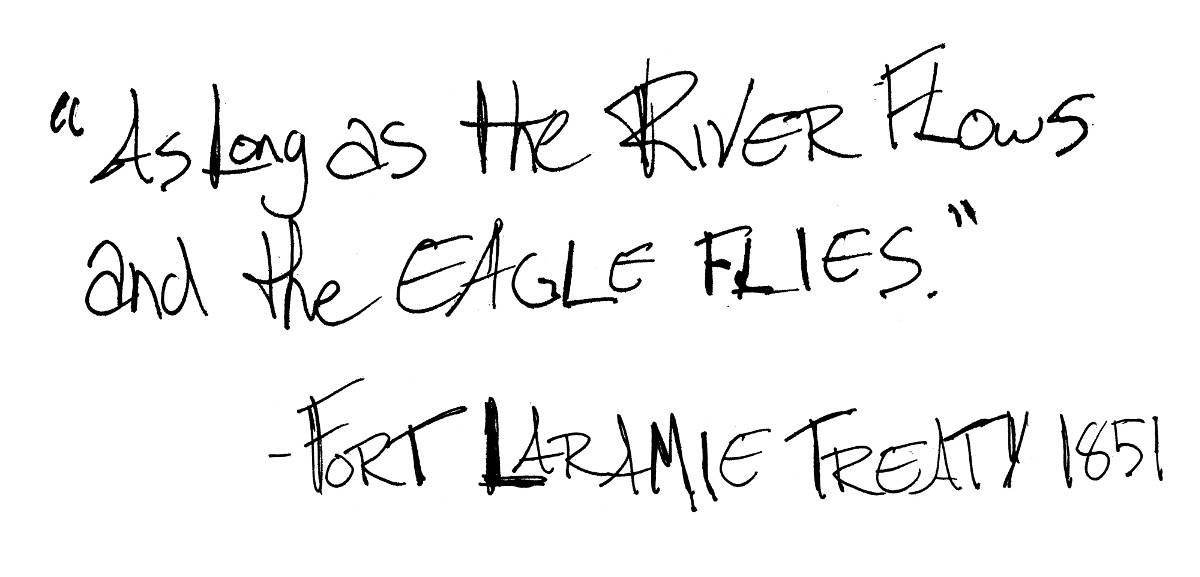 "As Long as the RIVER FLOWS
and the EAGLE FLIES."
-FORT LARAMIE TREATY 1851